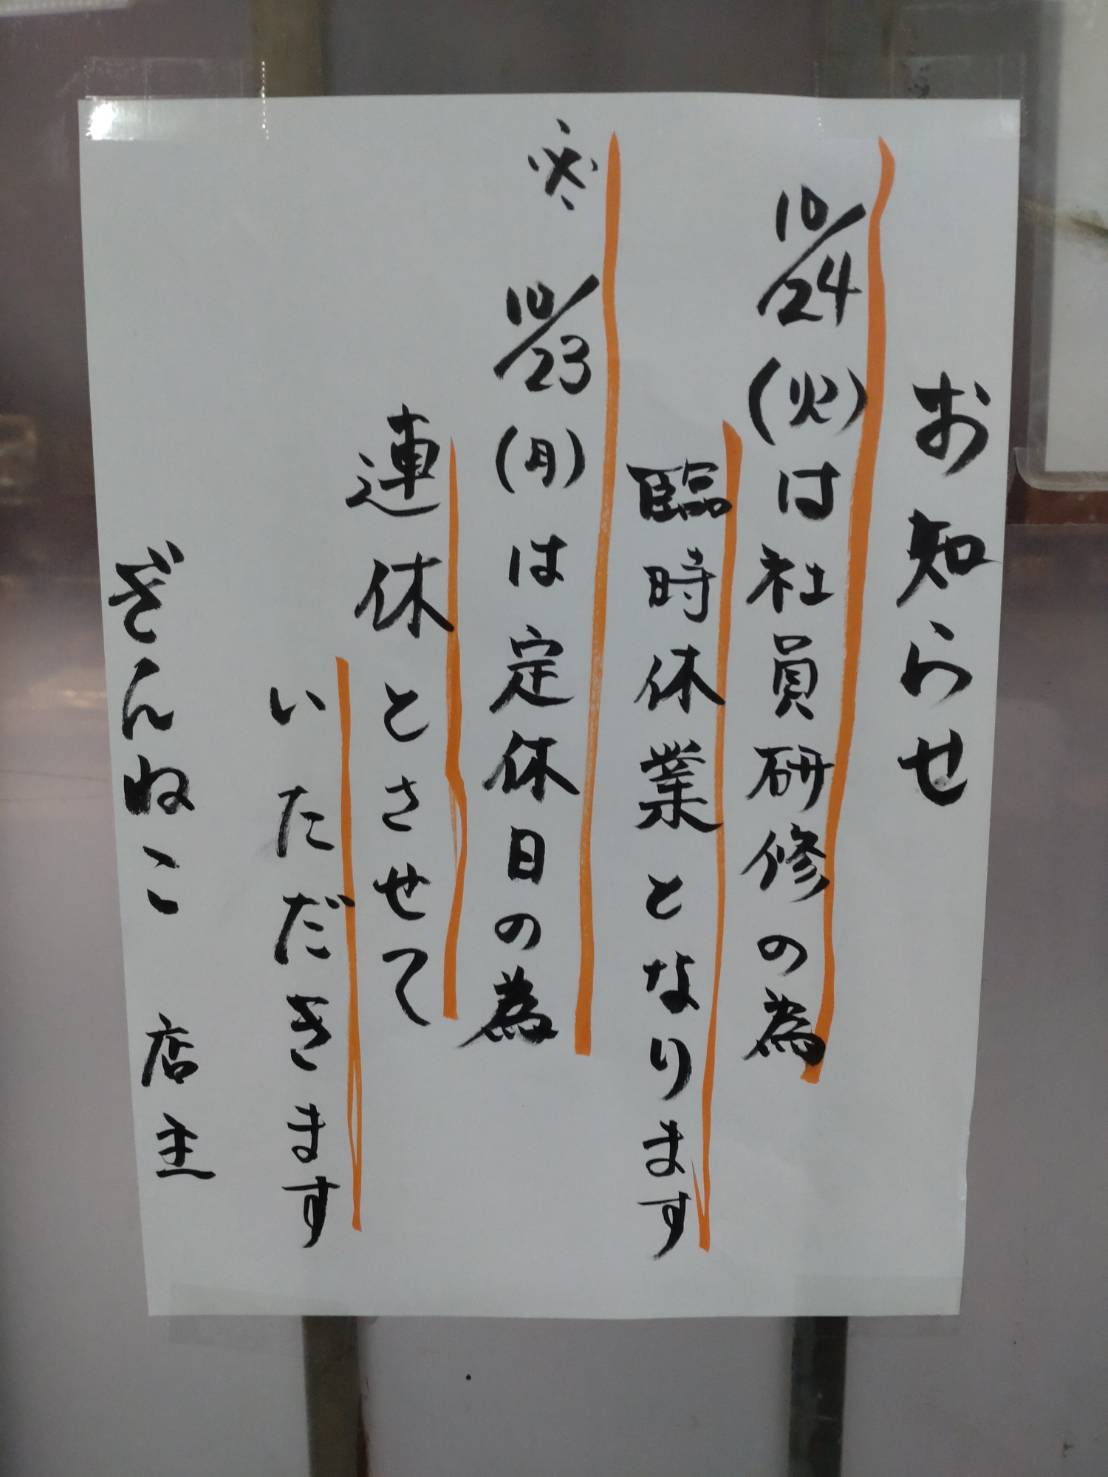 お知らせ
10/24(火)は社員研修の為
臨時休業となります
※ 10/23(月)は定休日の為
連休とさせて
いただきます
ぎんねこ 店主